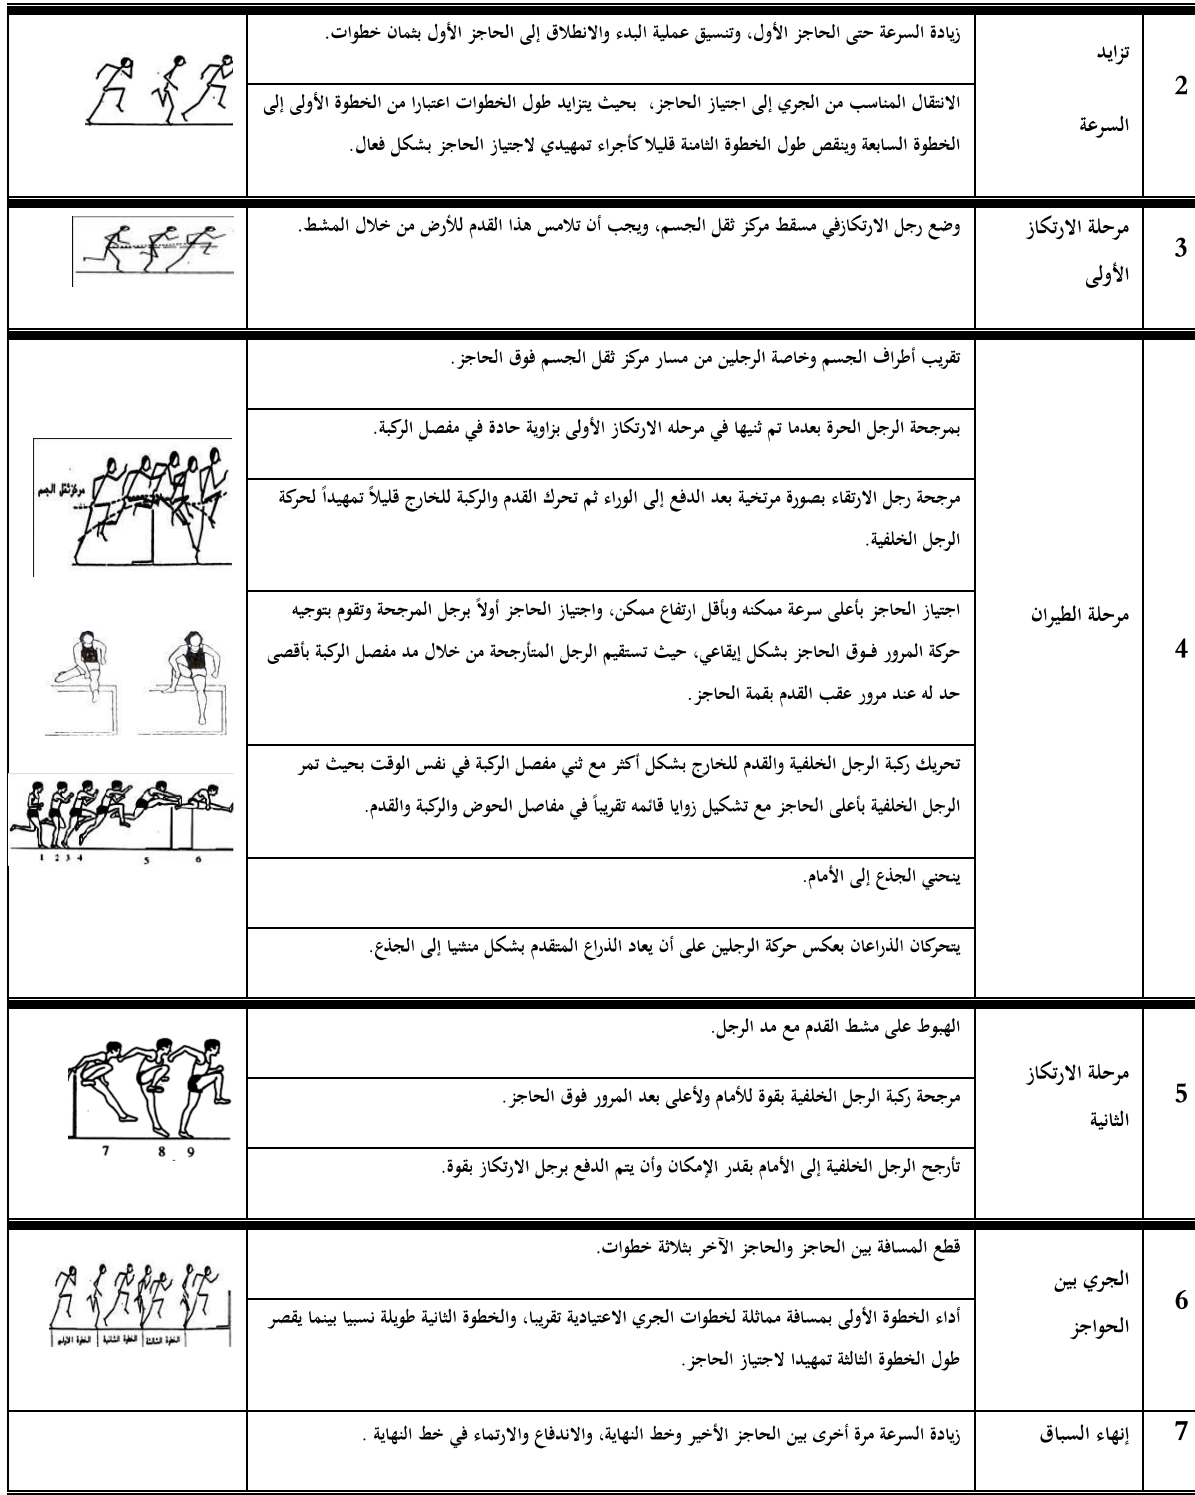 2
تزايد
السرعة
زيادة السرعة حتى الحاجز الأول، وتنسيق عملية البدء والانطلاق إلى الحاجز الأول بثمان خطوات.
الانتقال المناسب من الجري إلى اجتياز الحاجز، بحيث يتزايد طول الخطوات اعتبارا من الخطوة الأولى إلى
الخطوة السابعة وينقص طول الخطوة الثامنة قليلا كأجراء تمهيدي لاجتياز الحاجز بشكل فعال.
3
مرحلة الارتكاز
الأولى
وضع رجل الارتكازفي مسقط مركز ثقل الجسم، ويجب أن تلامس هذا القدم للأرض من خلال المشط.
4
مرحلة الطيران
تقريب أطراف الجسم وخاصة الرجلين من مسار مركز ثقل الجسم فوق الحاجز.
بمرجحة الرجل الحرة بعدما تم ثنيها في مرحله الارتكاز الأولى بزاوية حادة في مفصل الركبة.
مرجحة رجل الارتقاء بصورة مرتخية بعد الدفع إلى الوراء ثم تحرك القدم والركبة للخارج قليلاً تمهيداً لحركة
الرجل الخلفية.
اجتياز الحاجز بأعلى سرعة ممكنه وبأقل ارتفاع ممكن، واجتياز الحاجز أولاً برجل المرجحة وتقوم بتوجيه
حركة المرور فـوق الحاجز بشكل إيقاعي، حيث تستقيم الرجل المتأرجحة من خلال مد مفصل الركبة بأقصى
حد له عند مرور عقب القدم بقمة الحاجز.
تحريك ركبة الرجل الخلفية والقدم للخارج بشكل أكثر مع ثني مفصل الركبة في نفس الوقت بحيث تمر
الرجل الخلفية بأعلى الحاجز مع تشكيل زوايا قائمه تقريباً في مفاصل الحوض والركبة والقدم.
ينحني الجذع إلى الأمام.
يتحركان الذراعان بعكس حركة الرجلين على أن يعاد الذراع المتقدم بشكل منثنيا إلى الجذع.
مركز ثقل الجسم
1 2 3 4 5 6
5
مرحلة الارتكاز
الثانية
الهبوط على مشط القدم مع مد الرجل.
مرجحة ركبة الرجل الخلفية بقوة للأمام ولأعلى بعد المرور فوق الحاجز.
تأرجح الرجل الخلفية إلى الأمام بقدر الإمكان وأن يتم الدفع برجل الارتكاز بقوة.
7 8 9
6
الجري بين
الحواجز
قطع المسافة بين الحاجز والحاجز الآخر بثلاثة خطوات.
أداء الخطوة الأولى بمسافة مماثلة لخطوات الجري الاعتيادية تقريبا، والخطوة الثانية طويلة نسبيا بينما يقصر
طول الخطوة الثالثة تمهيدا لاجتياز الحاجز.
الخطوة الثالثة الخطوة الثانية الخطوة الأولى
7
إنهاء السباق
زيادة السرعة مرة أخرى بين الحاجز الأخير وخط النهاية، والاندفاع والارتماء في خط النهاية .